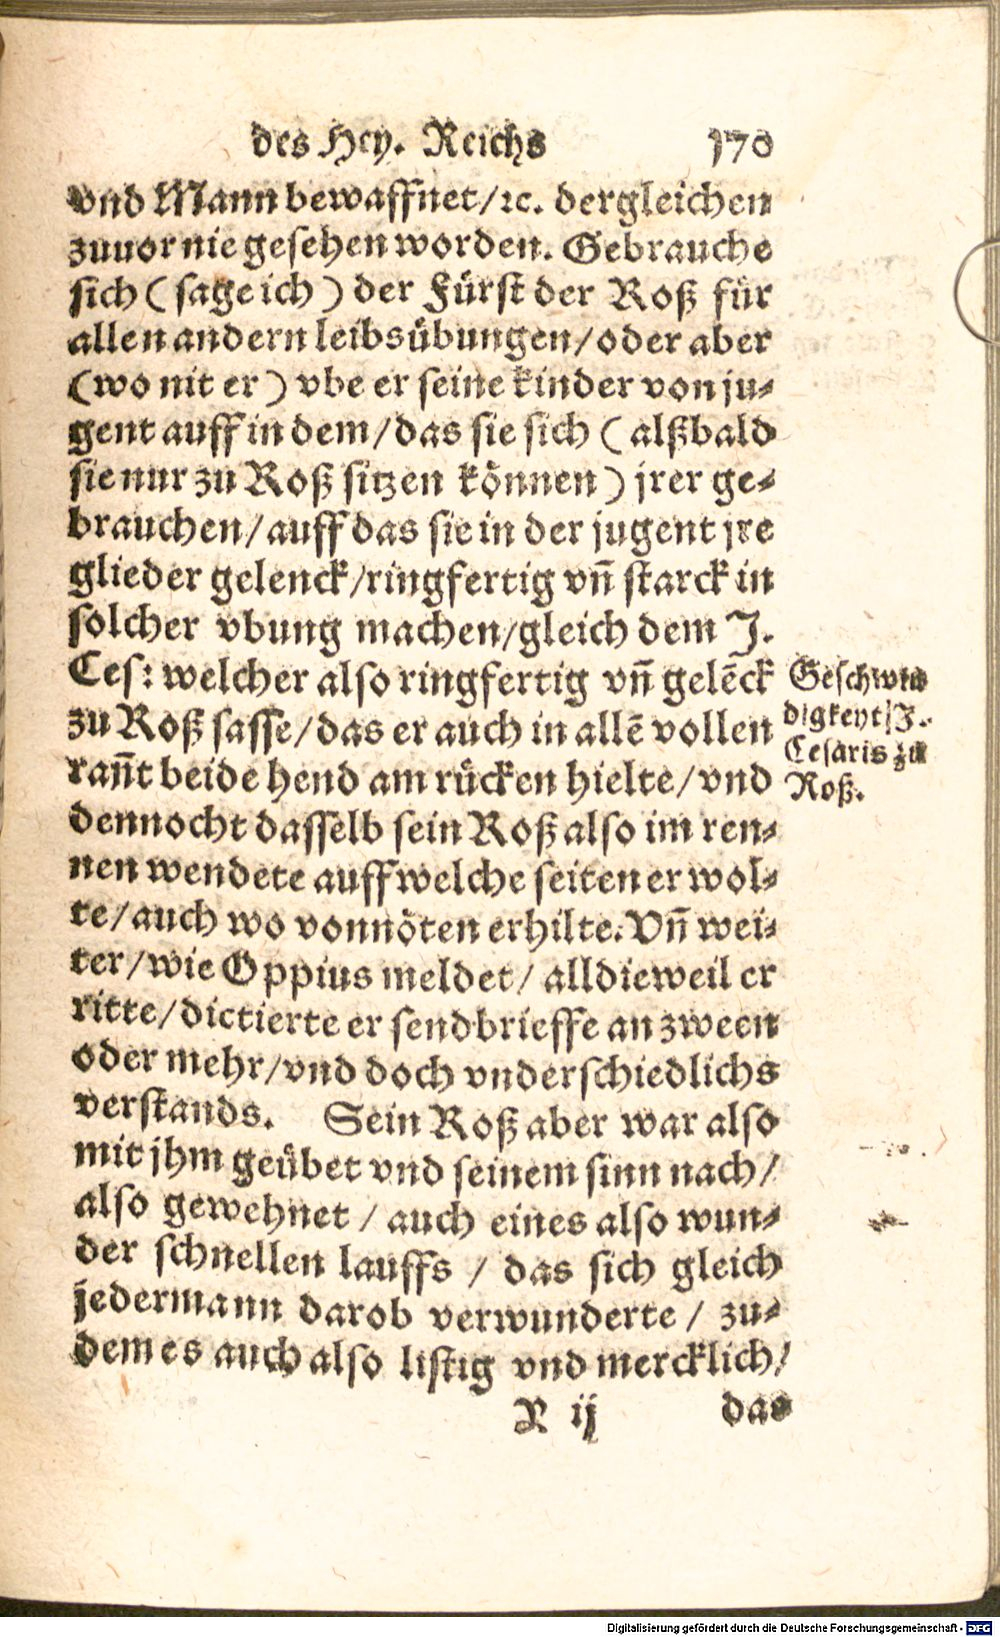 des Hey. Reichs 170
vnd Mann bewaffnet/ꝛc. dergleichen
zuuor nie gesehen worden. Gebrauche
sich (sage ich) der Fürst der Roß für
allen andern leibsübungen/oder aber
(wo nit er) vbe er seine kinder von ju⸗
gent auff in dem/das sie sich (alßbald
sie nur zu Roß sitzen können) jrer ge⸗
brauchen/auff das sie in der jugent jre
glieder gelenck/ringfertig vñ starck in
solcher vbung machen/gleich dem J.
Ces: welcher also ringfertig vñ gelẽck
zu Roß sasse/das er auch in allẽ vollen
rañt beide hend am rücken hielte/vnd
dennocht dasselb sein Roß also im ren⸗
nen wendete auff welche seiten er wol⸗
te/auch wo vonnöten erhilte. Vñ wei⸗
ter/wie Oppius meldet/ alldieweil er
ritte/dictierte er sendbrieffe an zween
oder mehr/vnd doch vnderschiedlichs
verstands. Sein Roß aber war also
mit jhm geübet vnd seinem sinn nach/
also gewehnet / auch eines also wun⸗
der schnellen lauffs / das sich gleich
jedermann darob verwunderte / zu⸗
dem es auch also listig vnd mercklich/
Geschwin
digkeyt J.
Cesaris zu
Roß.
R ij das
Digitalisierung gefördert durch die Deutsche Forschungsgemeinschaft - DFG